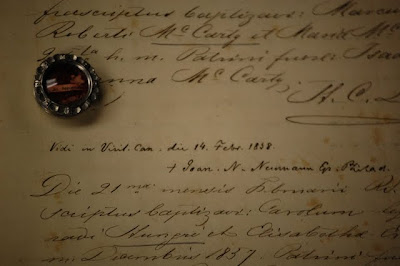 frascriptus baptizavi: Marcu
Roberti McCarty et Maria Mc
h. m. Patrini fuere Isaa
anna McCarty.
H. C. L
Vidi in Visit. Can. die 14. Febr. 1858.
+ Joan. N. Neumann Ep. Philad.
Die 21 ma mensis Februarii
scriptus baptizavi: Carolum
et Elisabetha
Decembris 1857. Patrini